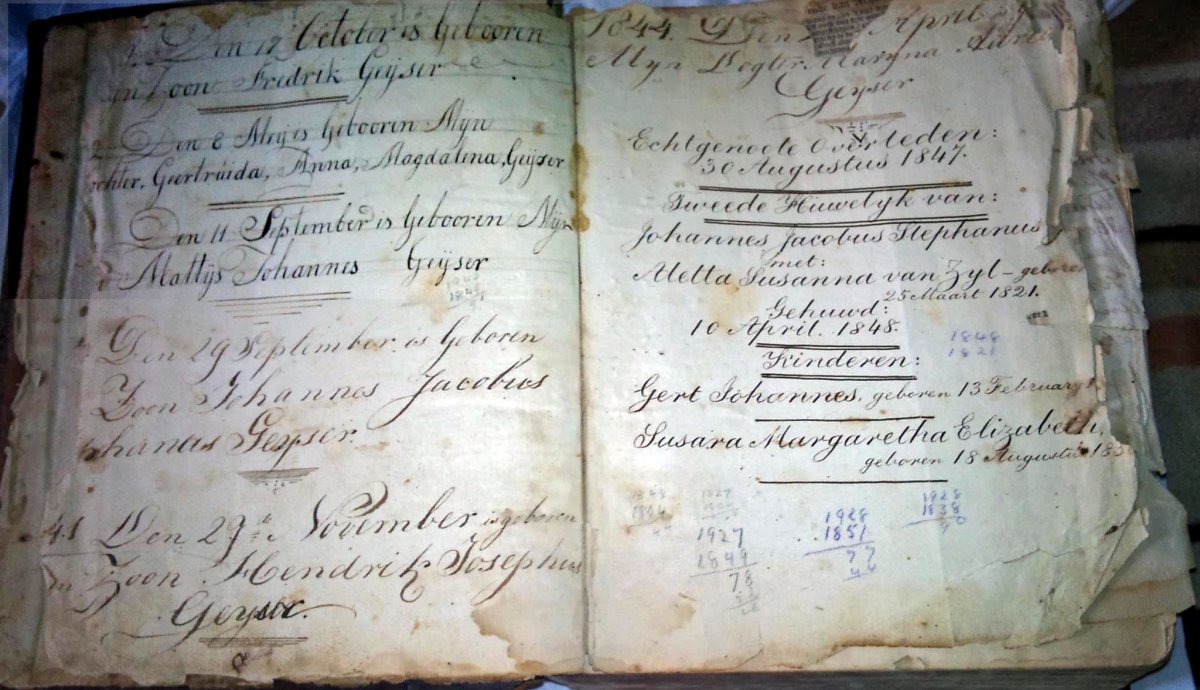 Den 17 October is Gebooren
Zoon Fredrik Geÿser
Den 8 Meÿ is Gebooren Mÿn
Geertruida, Anna, Magdalena, Geÿser
Den 11 September is Gebooren Mÿn
Mattÿs Johannes Geÿser
Den 29 September is Geboren
Zoon Johannes Jacobus
Geyser.
41 Den 29ste November is geboren
Zoon Hendrik Josephus
Geyser.
1844. Den April
Myn Dogter Maryna
Geyser
Echtgenoote Overleden:
30 Augustus 1847.
Tweede Huwelyk van:
Johannes Jacobus Stephanus
met:
Aletta Susanna van Zyl – geboren
25 Maart 1821.
Gehuwd:
10 April. 1848.
1848
1821
Kinderen:
Gert Johannes, geboren 13 February
Susara Margaretha Elizabeth,
geboren 18 Augustus
1927
1849
78
1928
1851
77
1928
1838